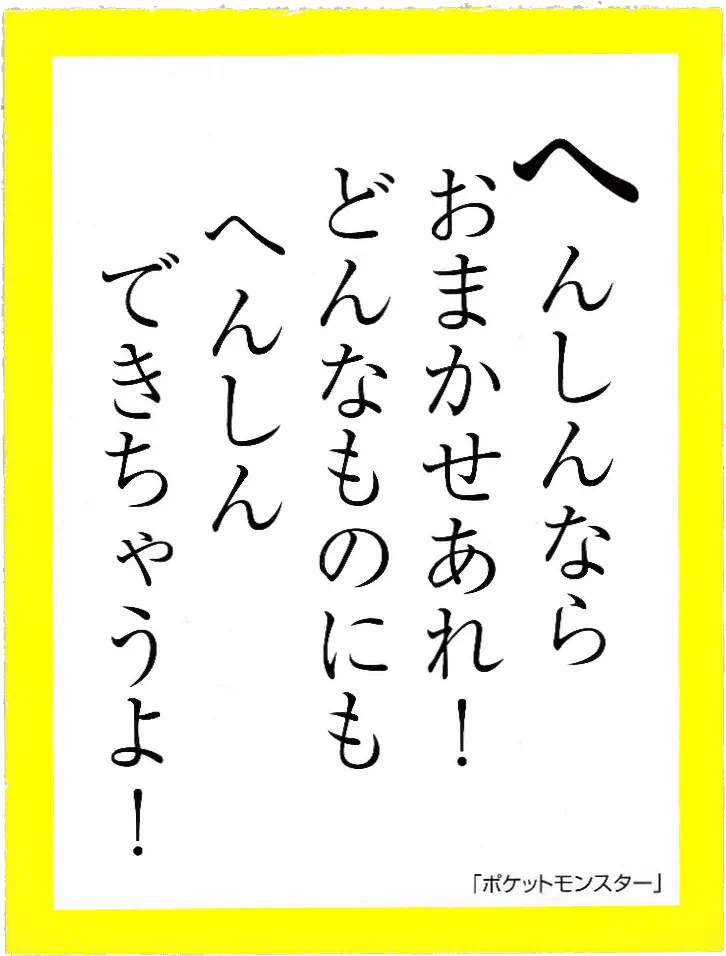 へんしんなら
おまかせあれ！
どんなものにも
へんしん
できちゃうよ！
「ポケットモンスター」